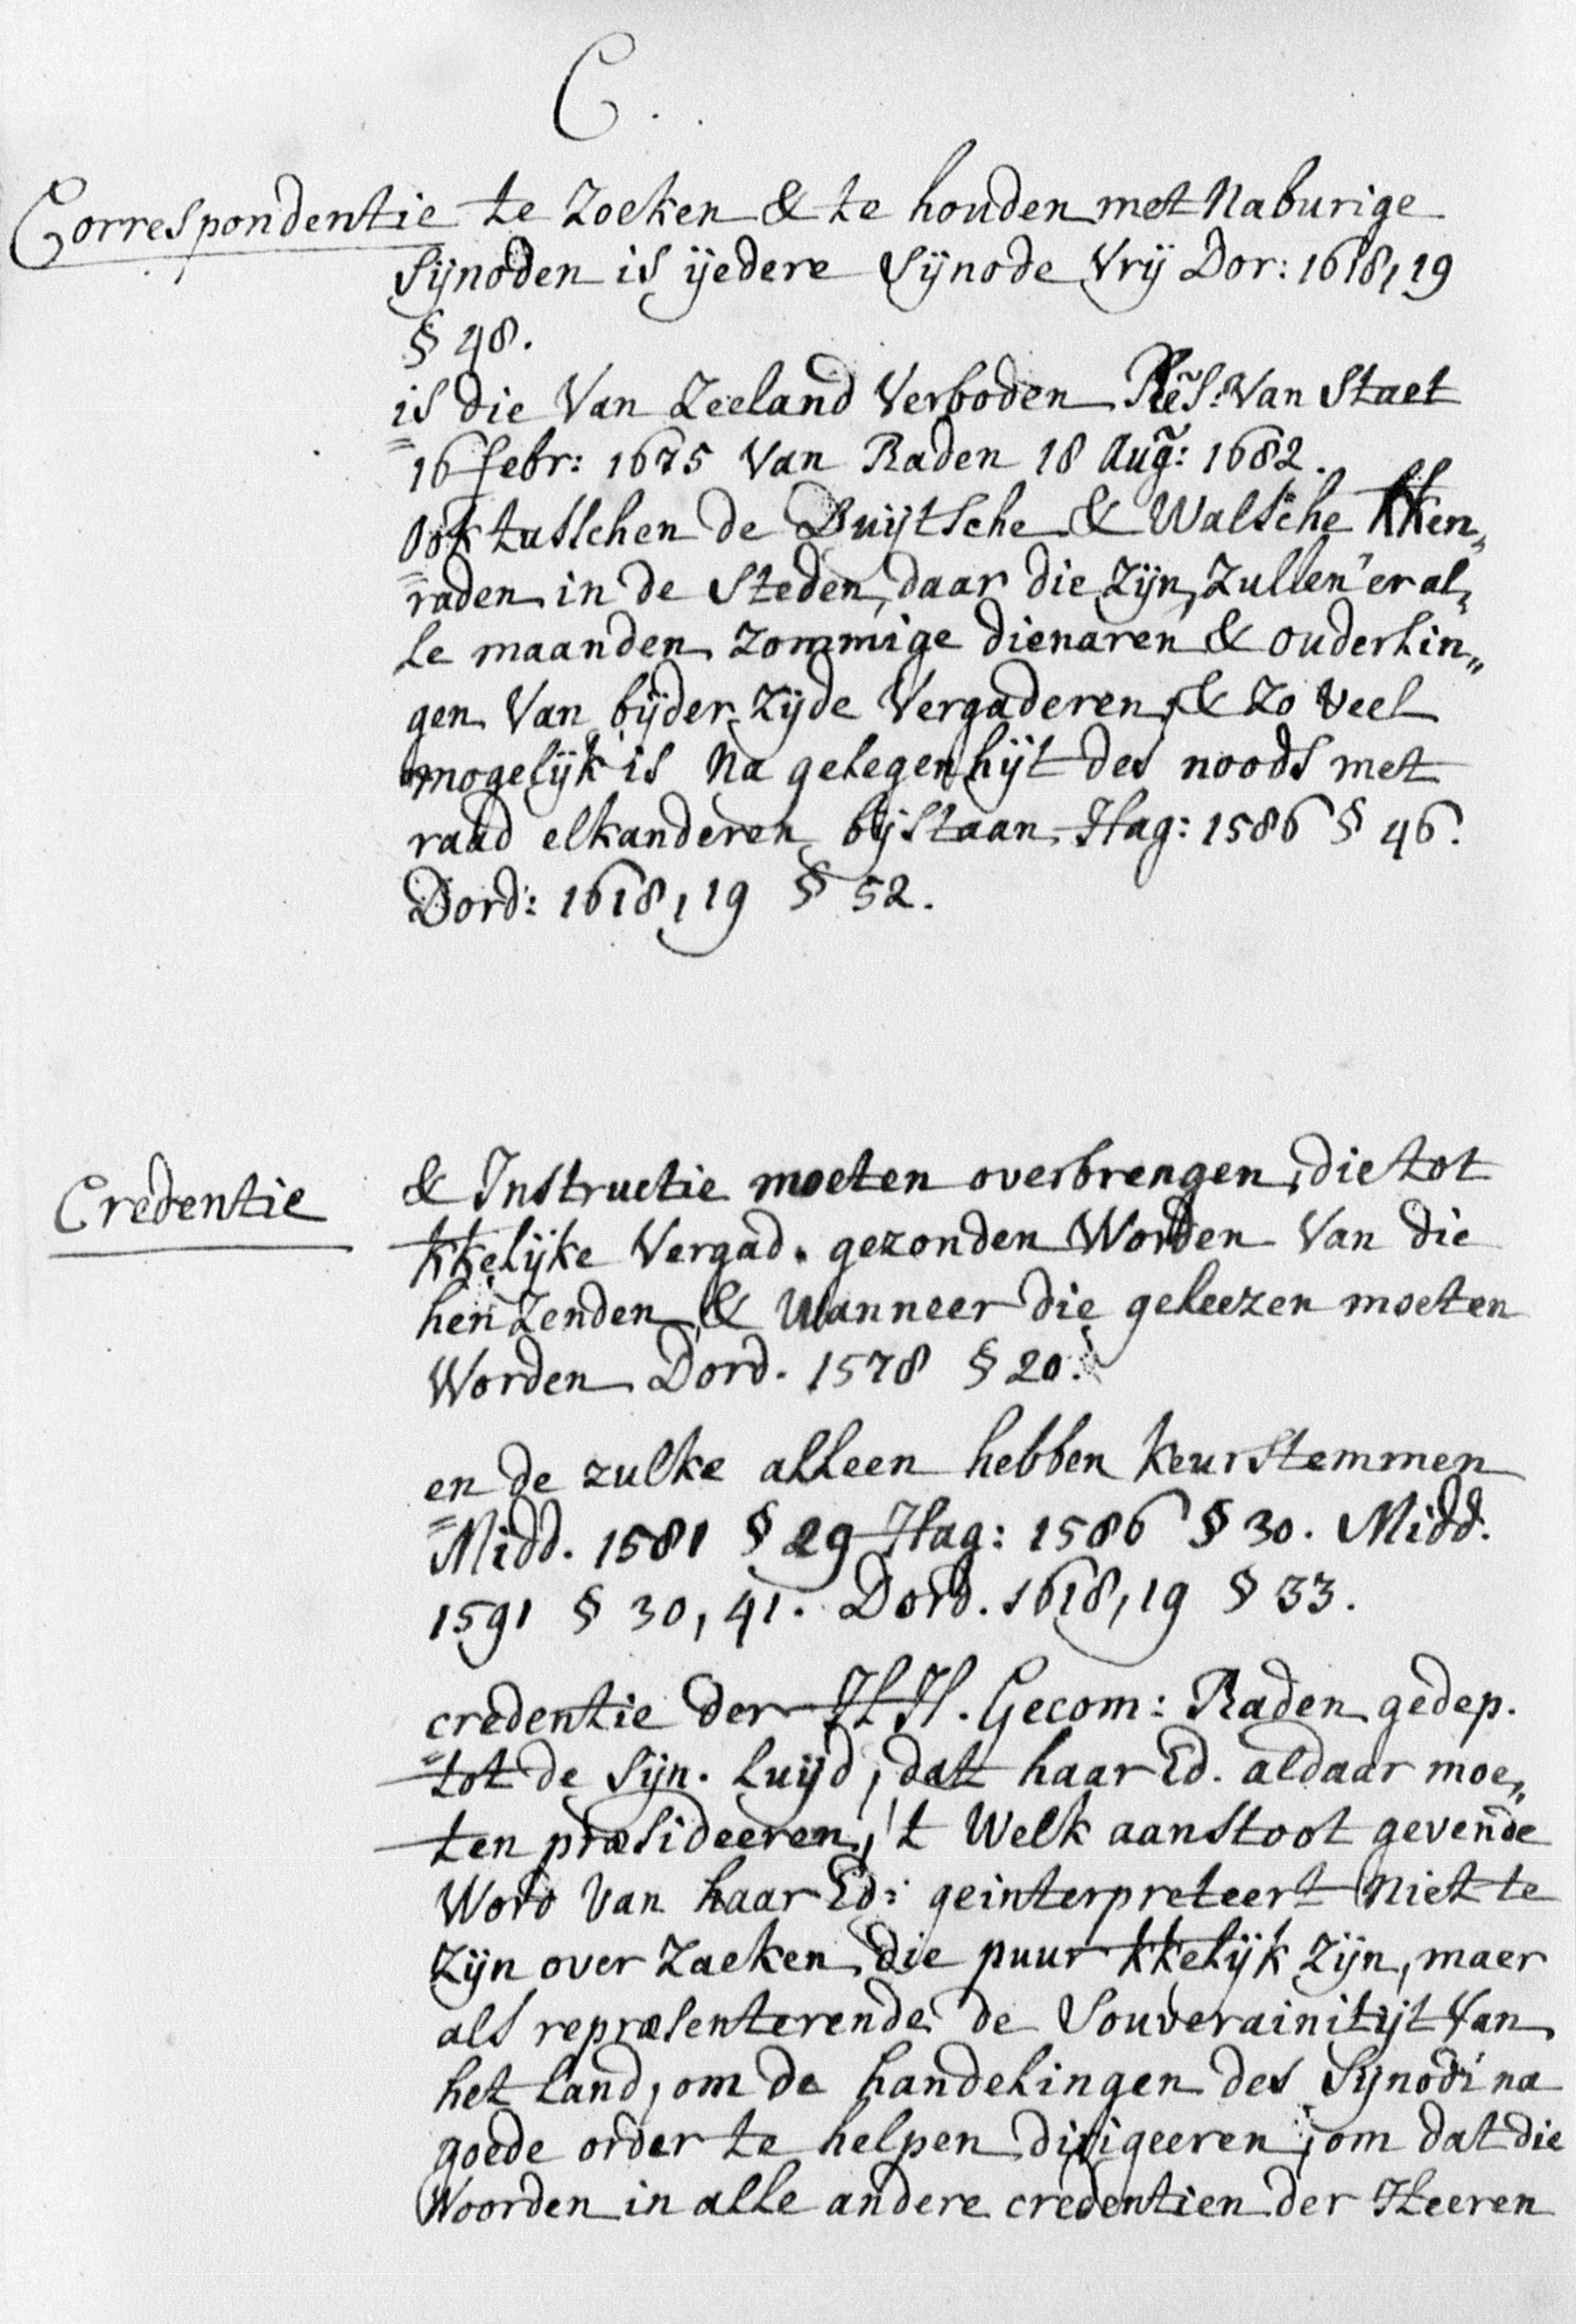 C.
Correspondentie te zoeken & te houden met Naburige
Sijnoden is ijedere Sijnode Vrij Dor: 1618,19
§ 48.
is die Van Zeeland Verboden Res: Van Staet
16 febr: 1675 Van Raden 18 Aug: 1682.
Ook tusschen de Duijtsche & Walsche kken„
raden in de Steden, daar die Zijn, Zullen 'er al„
le maanden zommige dienaren & ouderlin„
gen Van bijder zijde Vergaderen, & zo veel
mogelijk is Na gelegenhijt des noods met
raad elkanderen bijstaan Hag: 1586 § 46.
Dord: 1618,19 § 52.
Credentie & Instructie moeten overbrengen, die tot
kkelijke Vergad. gezonden Worden Van die
hen zenden, & Wanneer die geleezen moeten
Worden Dord. 1578 § 20.
en de zulke alleen hebben keurstemmen
Midd. 1581 § 29 Hag: 1586 § 30. Midd.
1591 § 30, 41. Dord. 1618,19 § 33.
credentie der HH. Gecom: Raden gedep.
tot de Sijn. luijd, dat haar Ed. aldaar moe„
ten præsideeren, 't Welk aanstoot gevende
Word Van haar Ed: geinterpreteert Niet te
Zijn over Zaeken, die puur kkelijk Zijn, maer
als repræsenterende de Souverainitijt Van
het land, om de handelingen des Sijnodi na
goede order te helpen dirigeeren; om dat die
Woorden in alle andere credentien der Heeren